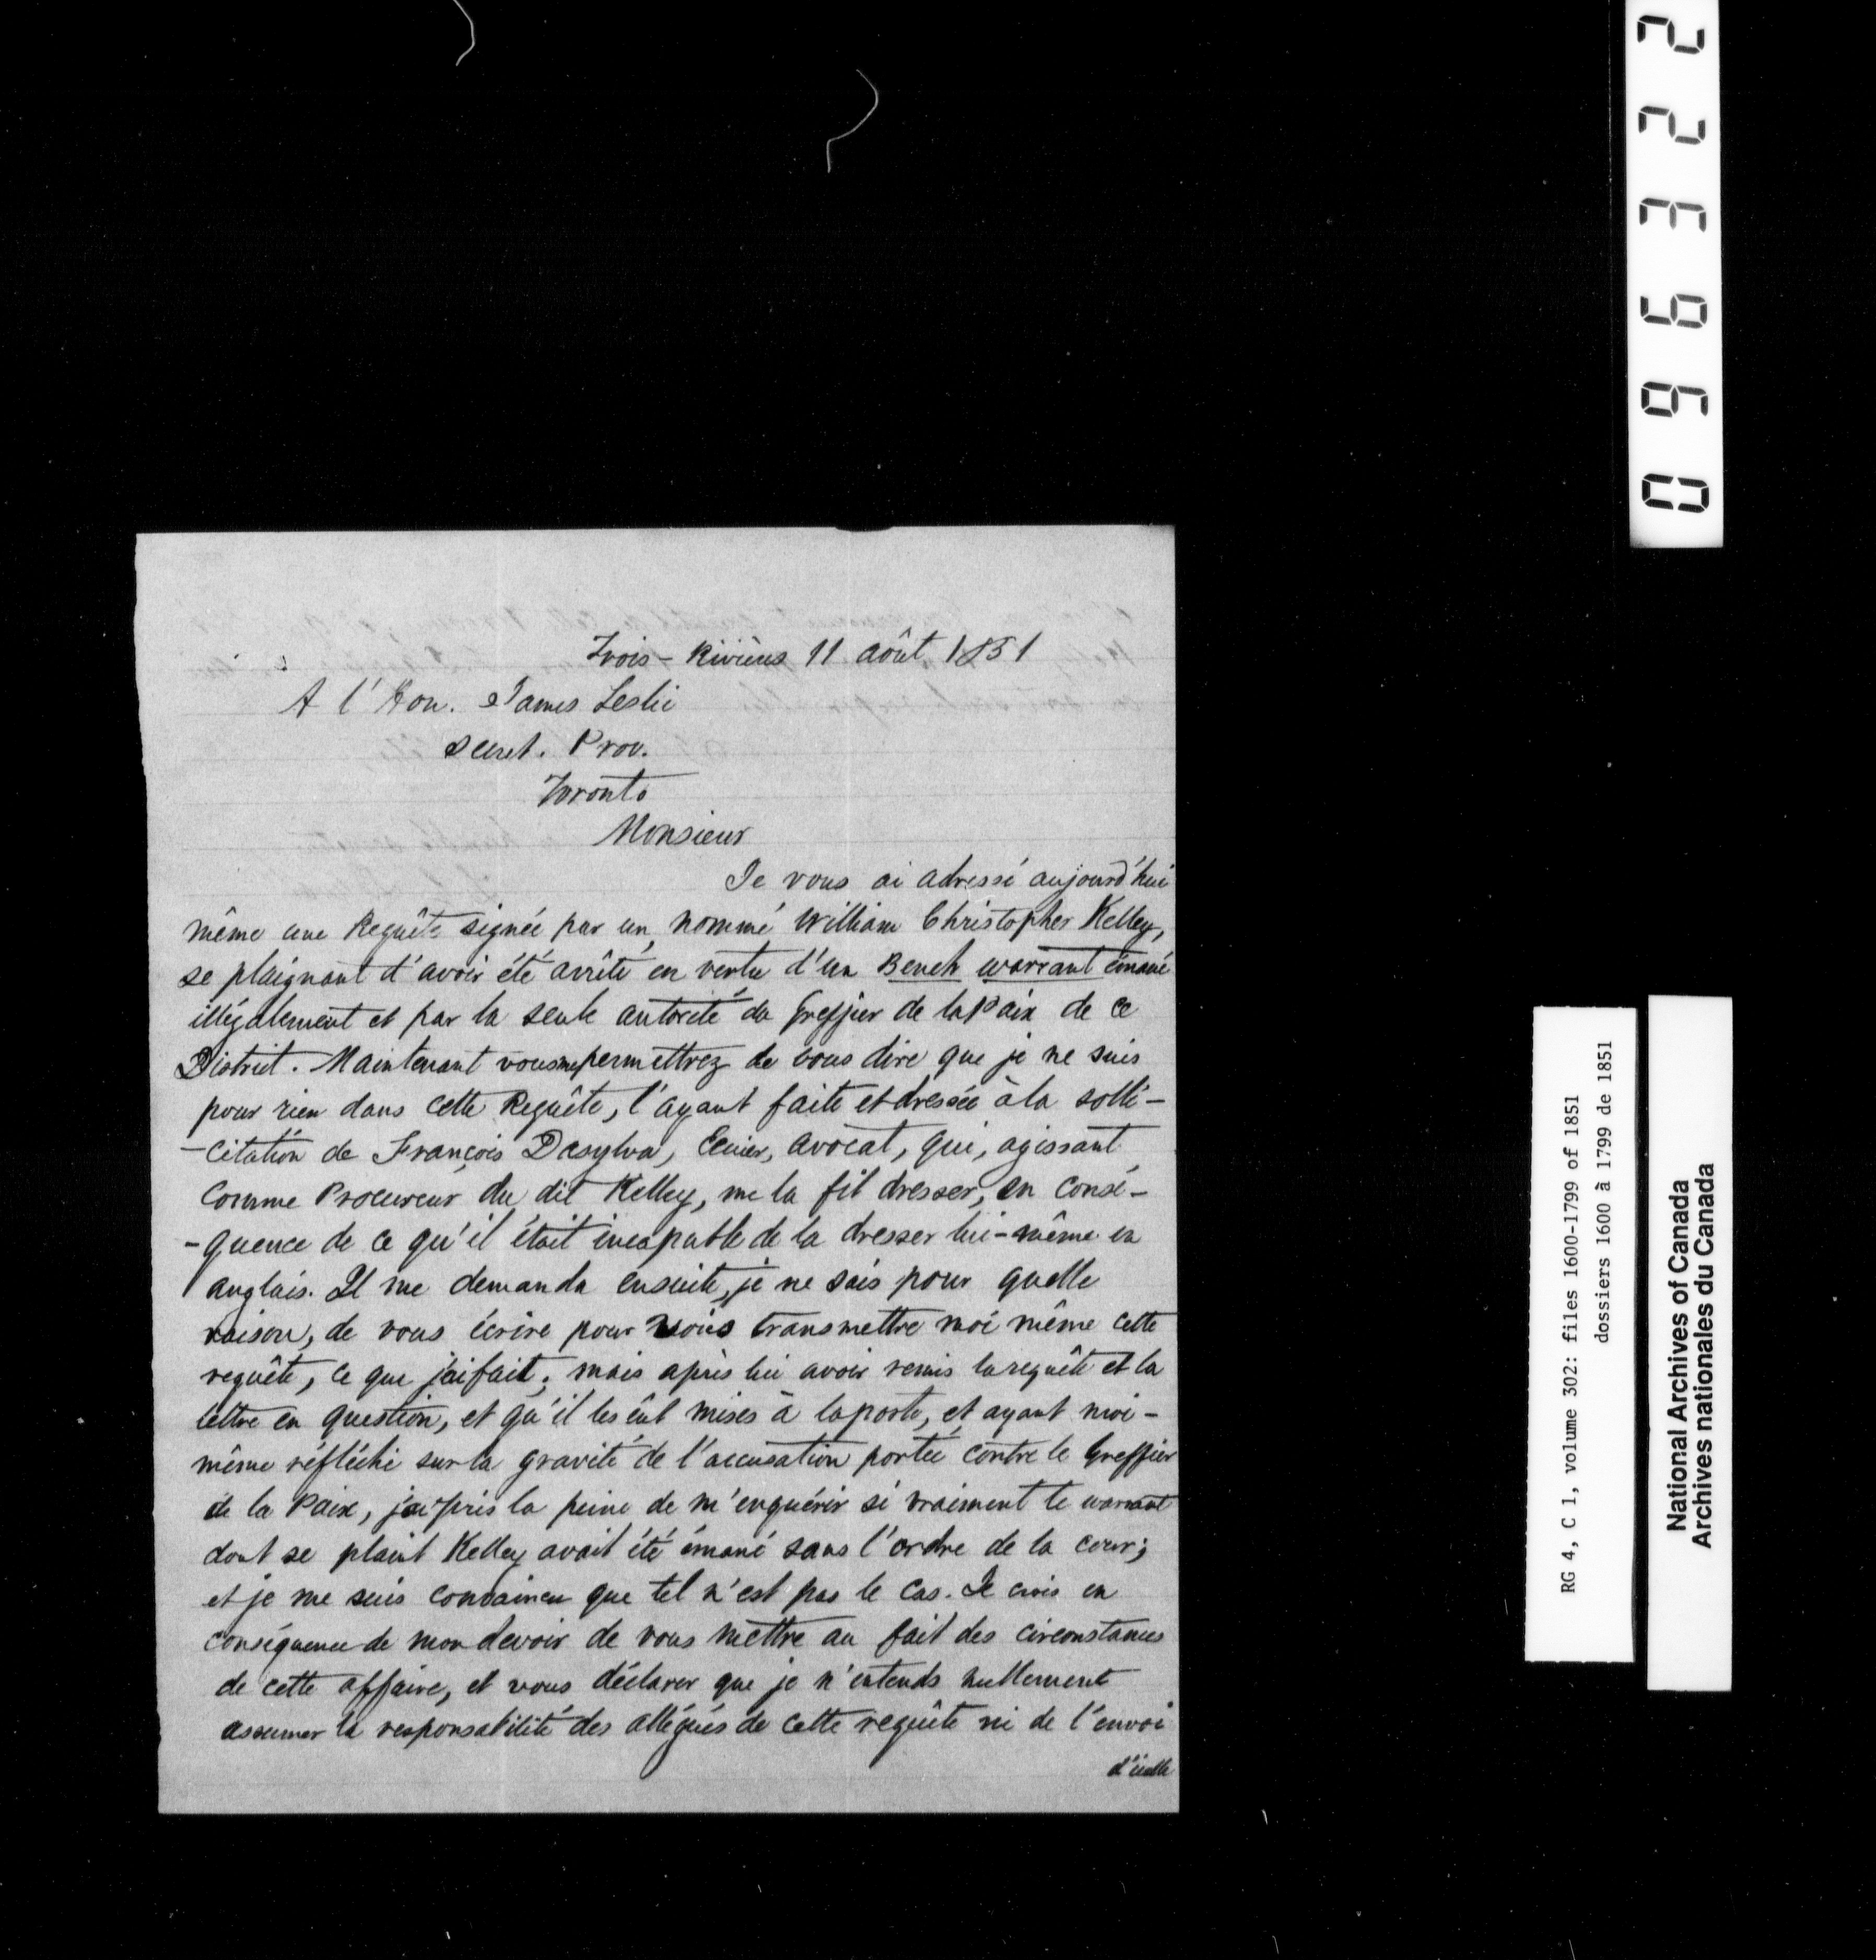 Trois-Rivières 11 août 1851
A l'Hon. James Leslie
Secret. Prov.
Toronto
Monsieur
Je vous ai adressé aujourd'hui
même une Requête signée par un nommé William Christopher Kelley,
se plaignant d'avoir été arrêté en vertu d'un Bench warrant émané
illégalement et par la seule autorité du Greffier de la Paix de ce
District. Maintenant vous me permettrez de vous dire que je ne suis
pour rien dans cette Requête, l'ayant faite et dressée à la solli-
-citation de François Dasylva, Ecuier, avocat, qui, agissant
comme Procureur du dit Kelley, me la fit dresser, en consé-
-quence de ce qu'il était incapable de la dresser lui-même en
anglais. Il me demanda ensuite, je ne sais pour quelle
raison, de vous écrire pour vous transmettre moi même cette
requête, ce que j'ai fait; mais après lui avoir remis la requête et la
lettre en question, et qu'il les eût mises à la poste, et ayant moi-
même réfléchi sur la gravité de l'accusation portée contre le Greffier
de la Paix, j'ai pris la peine de m'enquérir si vraiment le warrant
dont se plaint Kelley avait été émané sans l'ordre de la cour;
et je me suis convaincu que tel n'est pas le cas. Je crois en
conséquence de mon devoir de vous mettre au fait des circonstances
de cette affaire, et vous déclarer que je n'entends nullement
assumer la responsabilité des allégués de cette requête ni de l'envoi
d'icelle
096322
RG 4, C 1, volume 302: files 1600-1799 of 1851
dossiers 1600 à 1799 de 1851
National Archives of Canada
Archives nationales du Canada